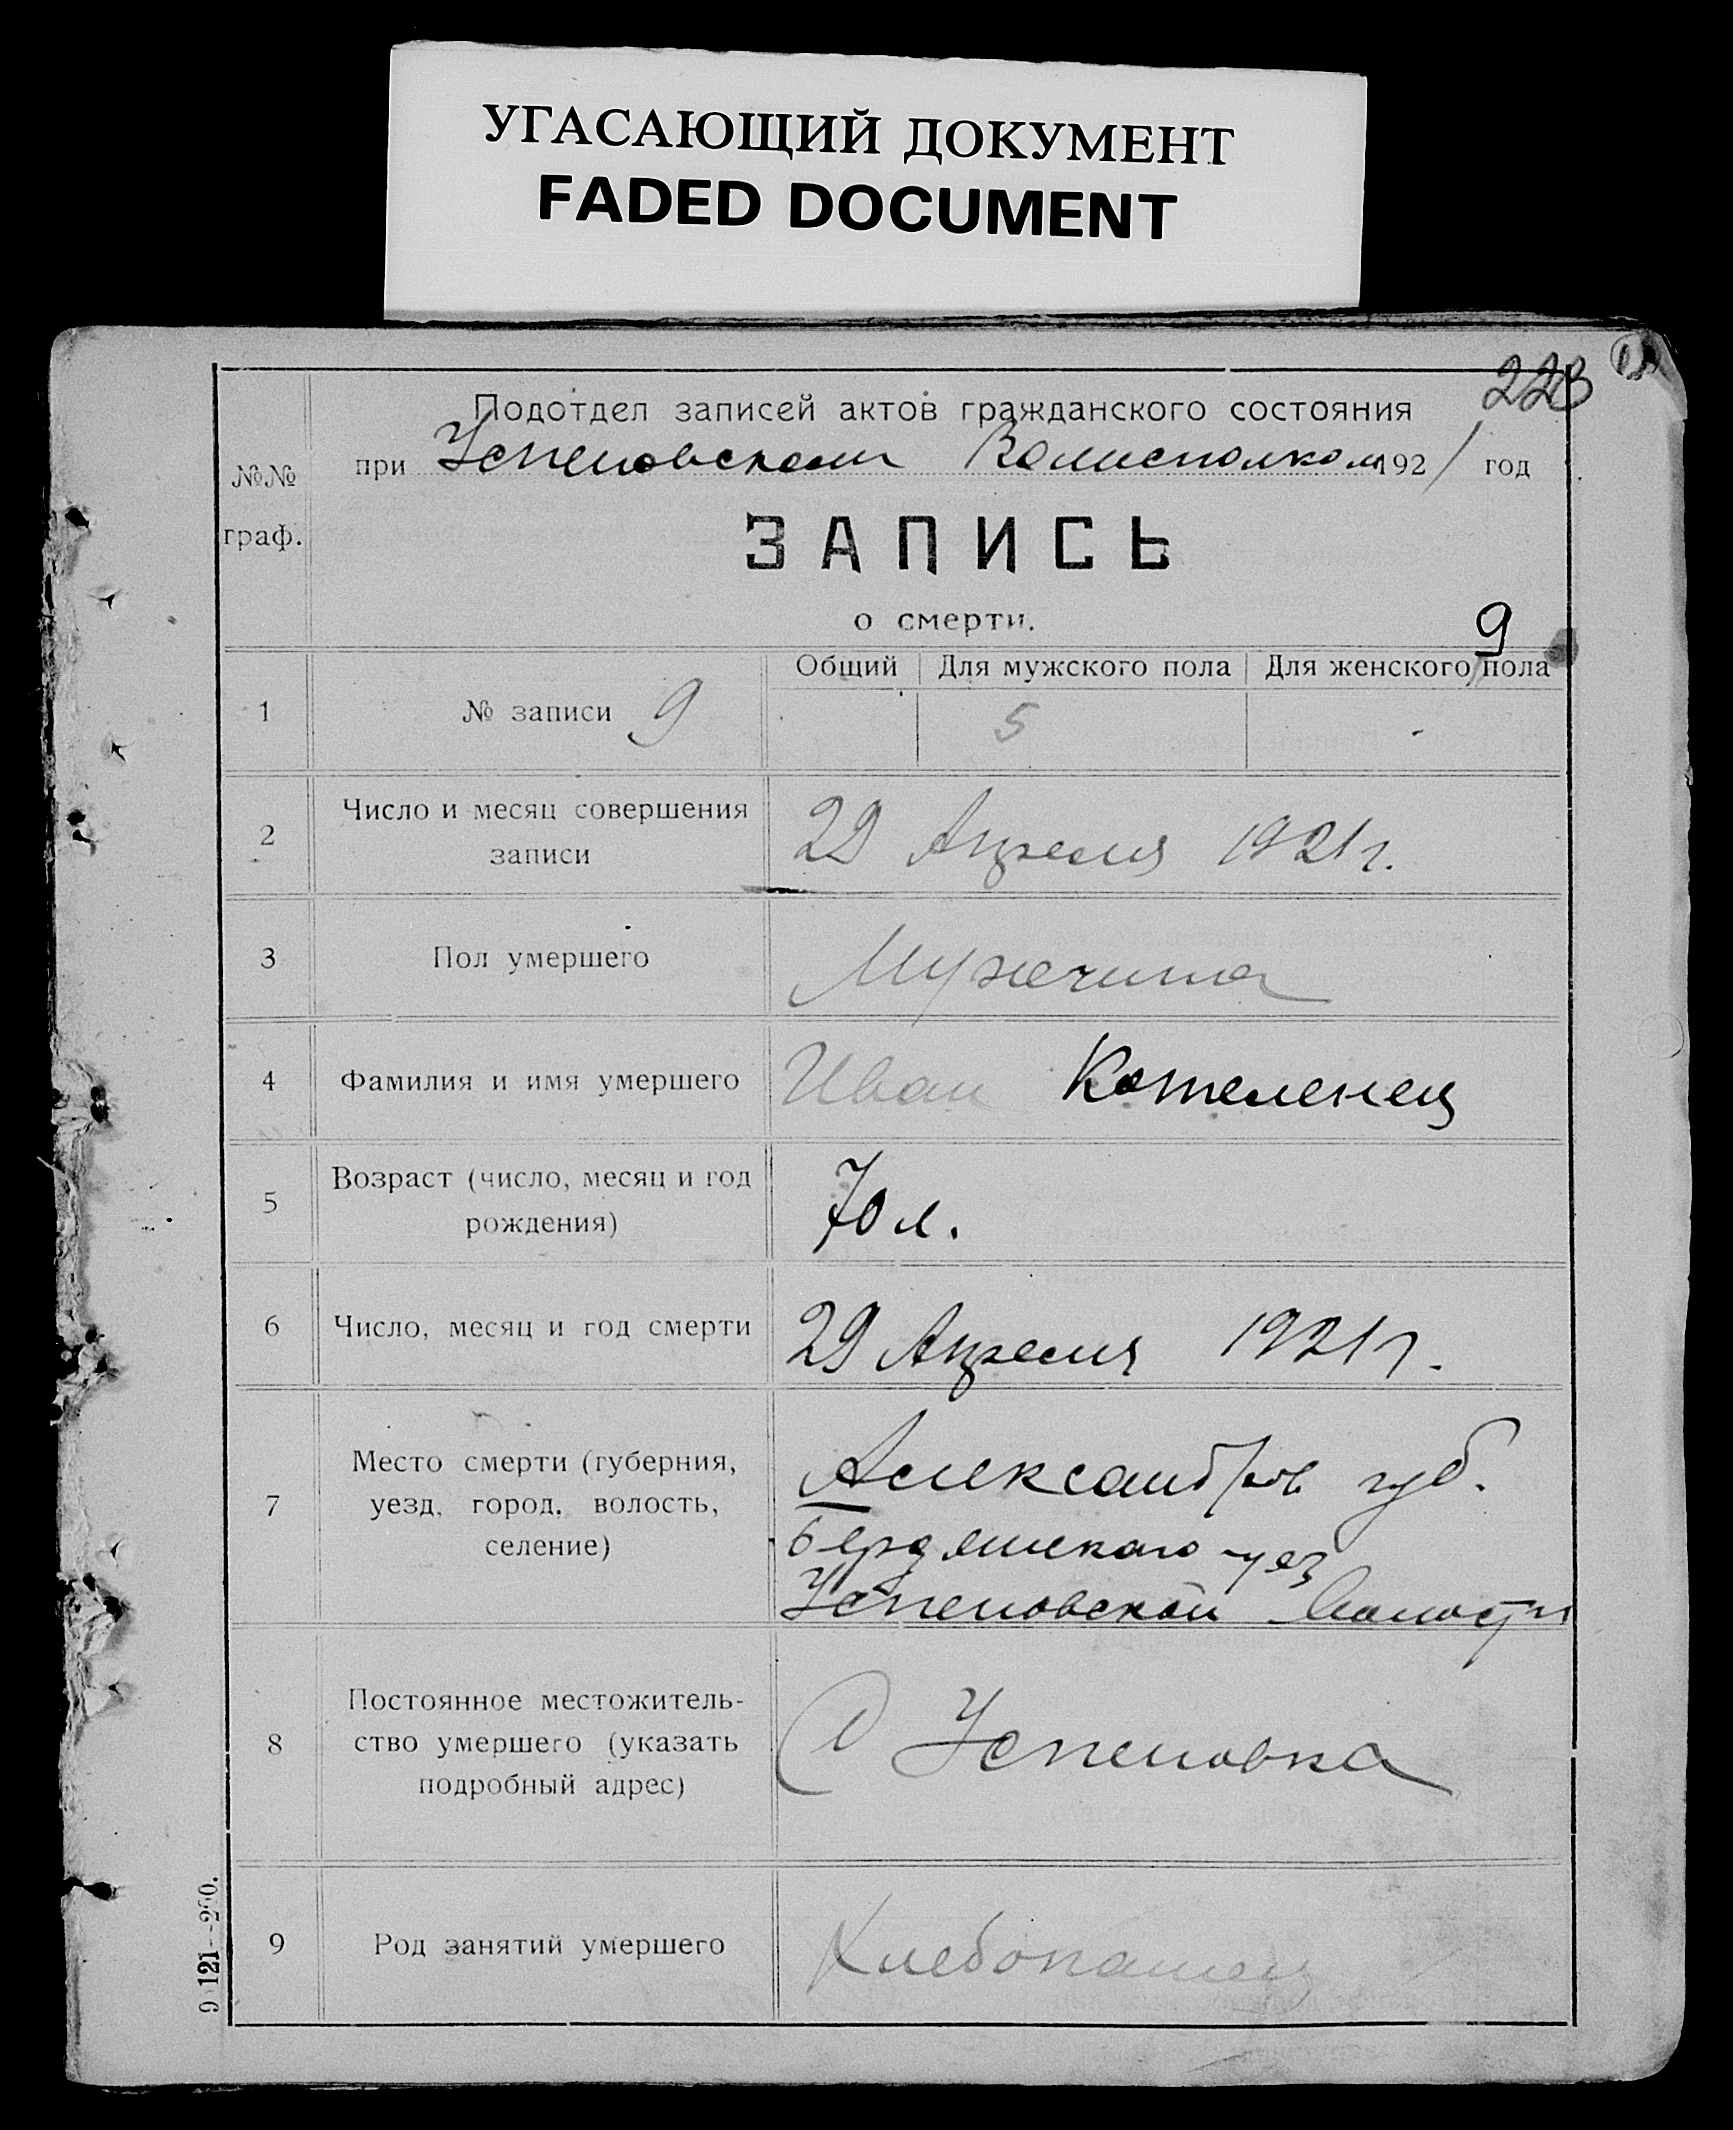 УГАСАЮЩИЙ ДОКУМЕНТ
FADED DOCUMENT
223
Подотдел записей актов гражданского состояния
№№ граф.
при Успеновском Волисполком 1921 год
ЗАПИСЬ
о смерти.
9
Общий Для мужского пола Для женского пола
1 № записи 9 5
2 Число и месяц совершения
записи
29 Апреля 1921 г.
3 Пол умершего Мужчина
4 Фамилия и имя умершего Иван Котеленец
5 Возраст (число, месяц и год
рождения)
70 л.
6 Число, месяц и год смерти 29 Апреля 1921 г.
7 Место смерти (губерния,
уезд, город, волость,
селение)
Александров губ.
Бердянского уез
Успеновской Волости
8 Постоянное местожитель-
ство умершего (указать
подробный адрес)
С Успеновка
9 Род занятий умершего Хлебопашец